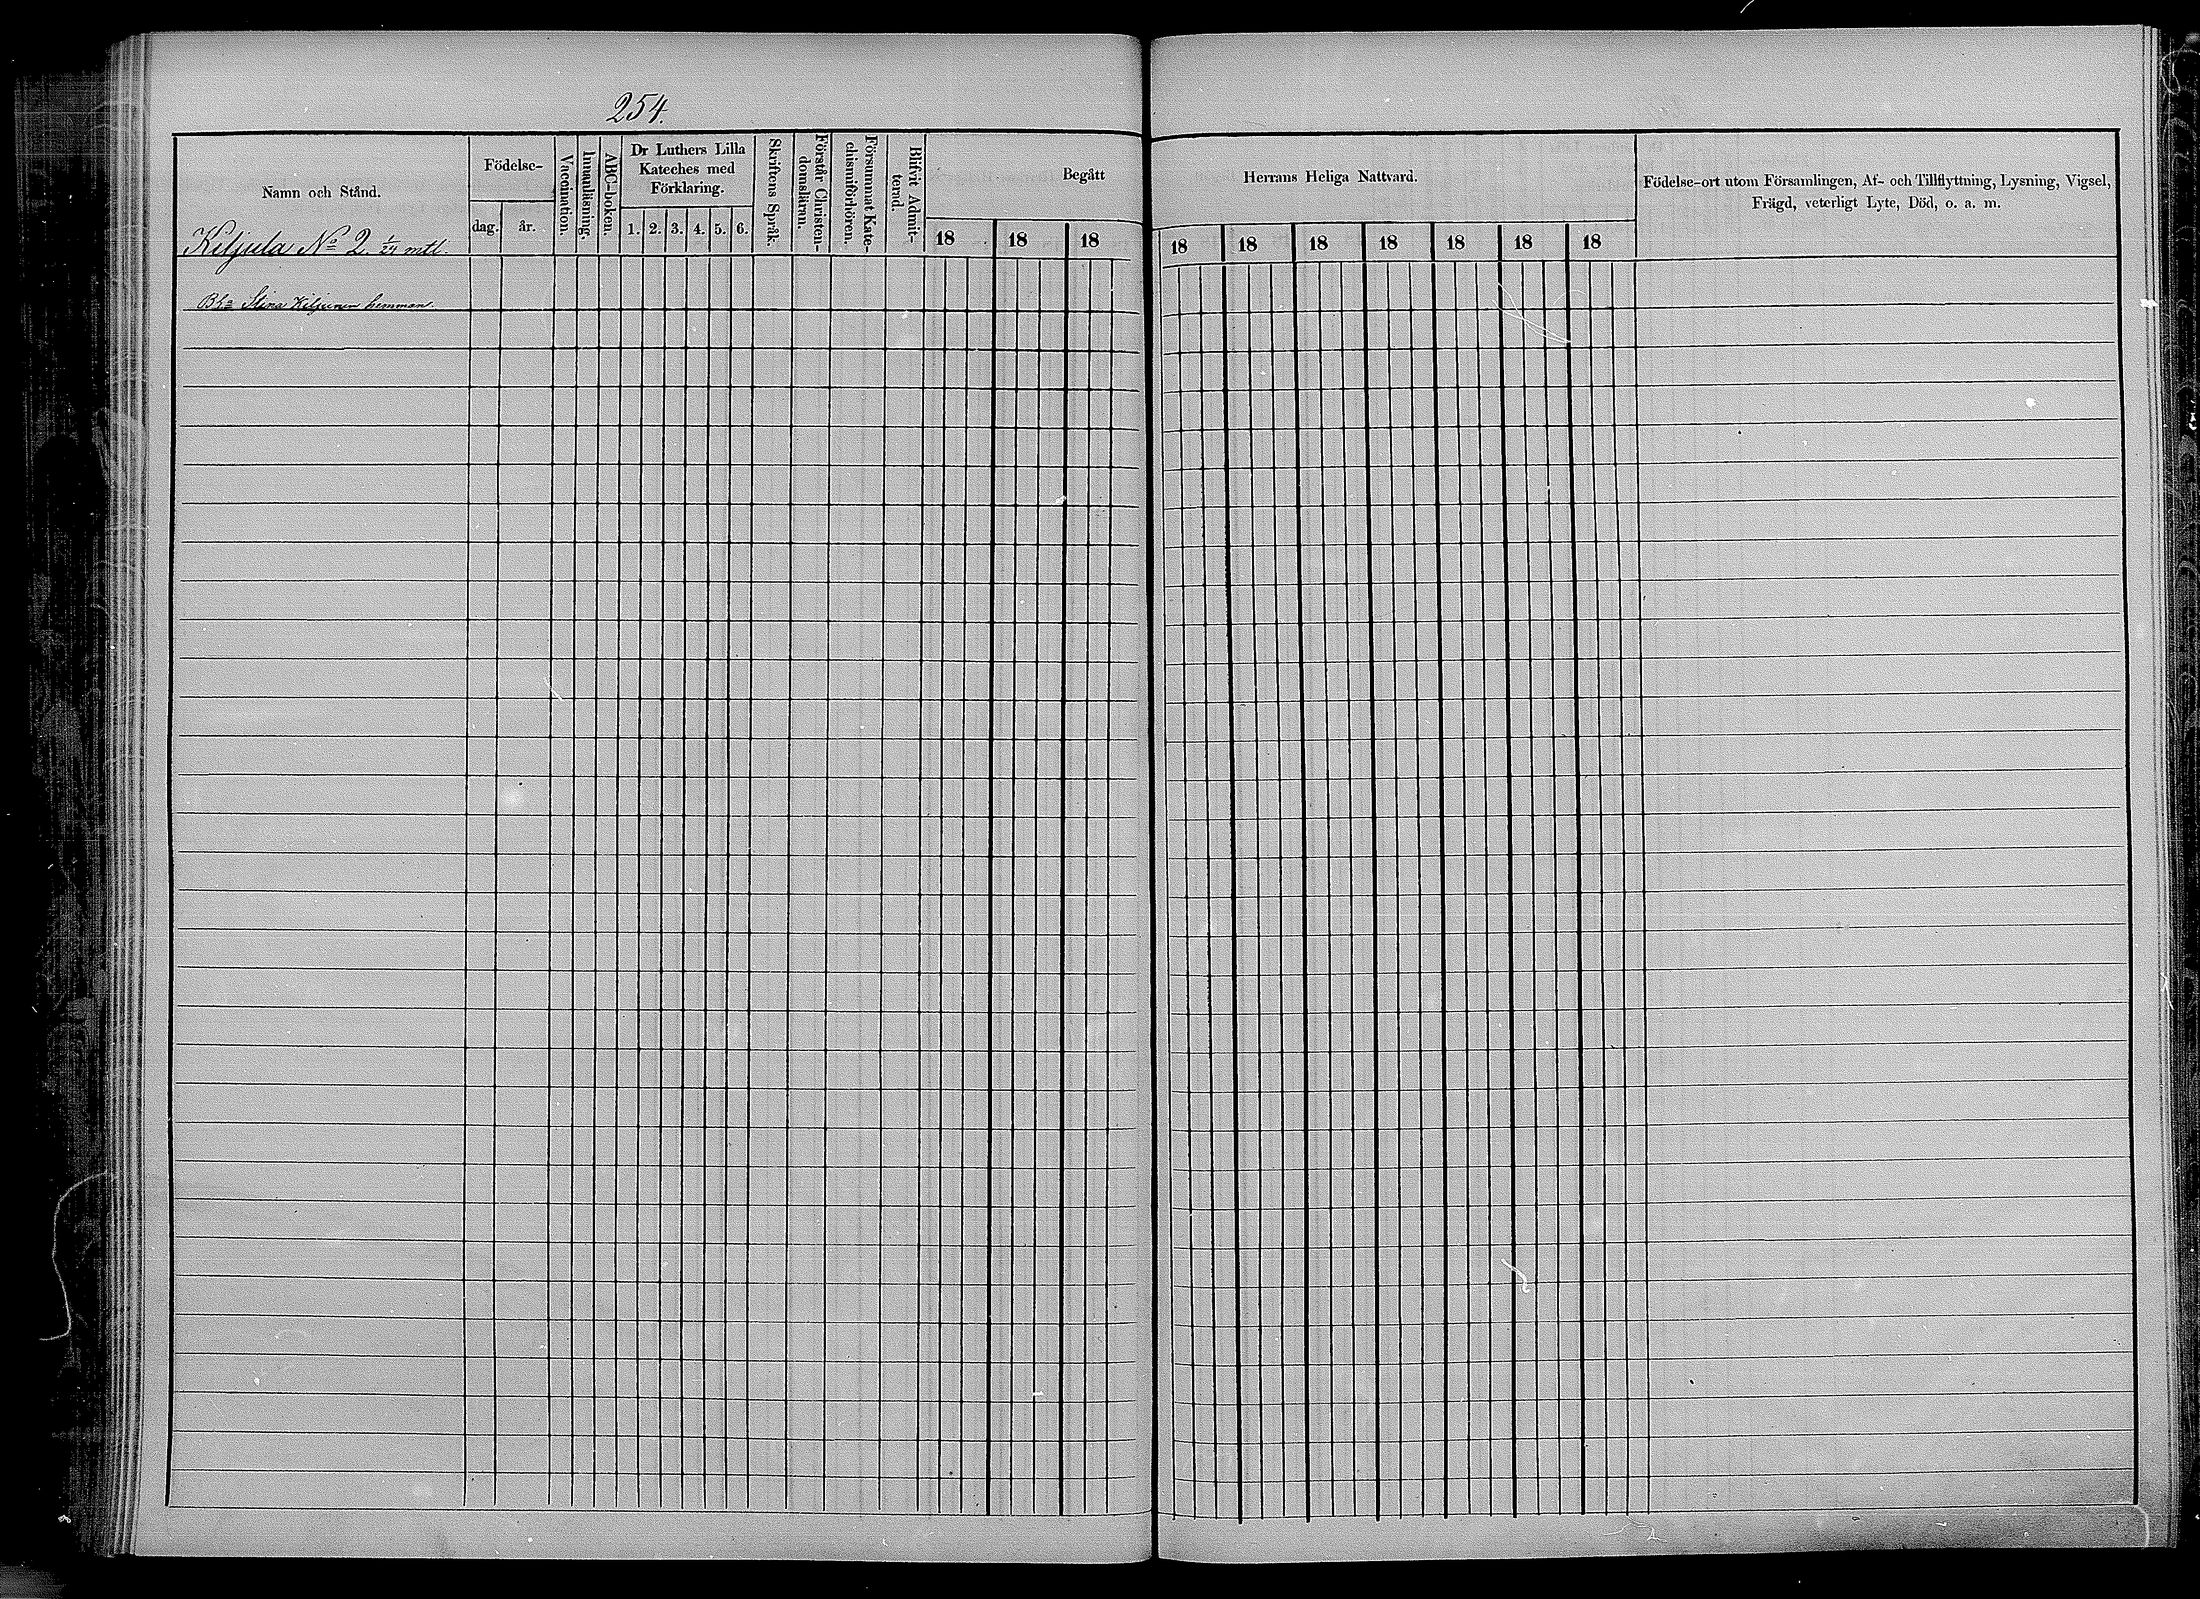 254.
Namn och Stånd.
Födelse-
dag.
år.
Vaccination.
Innanläsning.
ABC-boken.
Dr Luthers Lilla
Kateches med
Förklaring.
1. 2. 3. 4. 5. 6.
Skriftens Språk.
Förstår Christen-
domsläran.
Försummat Kate-
chismiförhören.
Blifvit Admit-
terad.
Begått
18 18 18
Herrans Heliga Nattvard.
18 18 18 18 18 18 18
Födelse-ort utom Församlingen, Af- och Tillflyttning, Lysning, Vigsel,
Frägd, veterligt Lyte, Död, o. a. m.
Kiljula No 2. mtl.
Stina Kiljunen hemman.